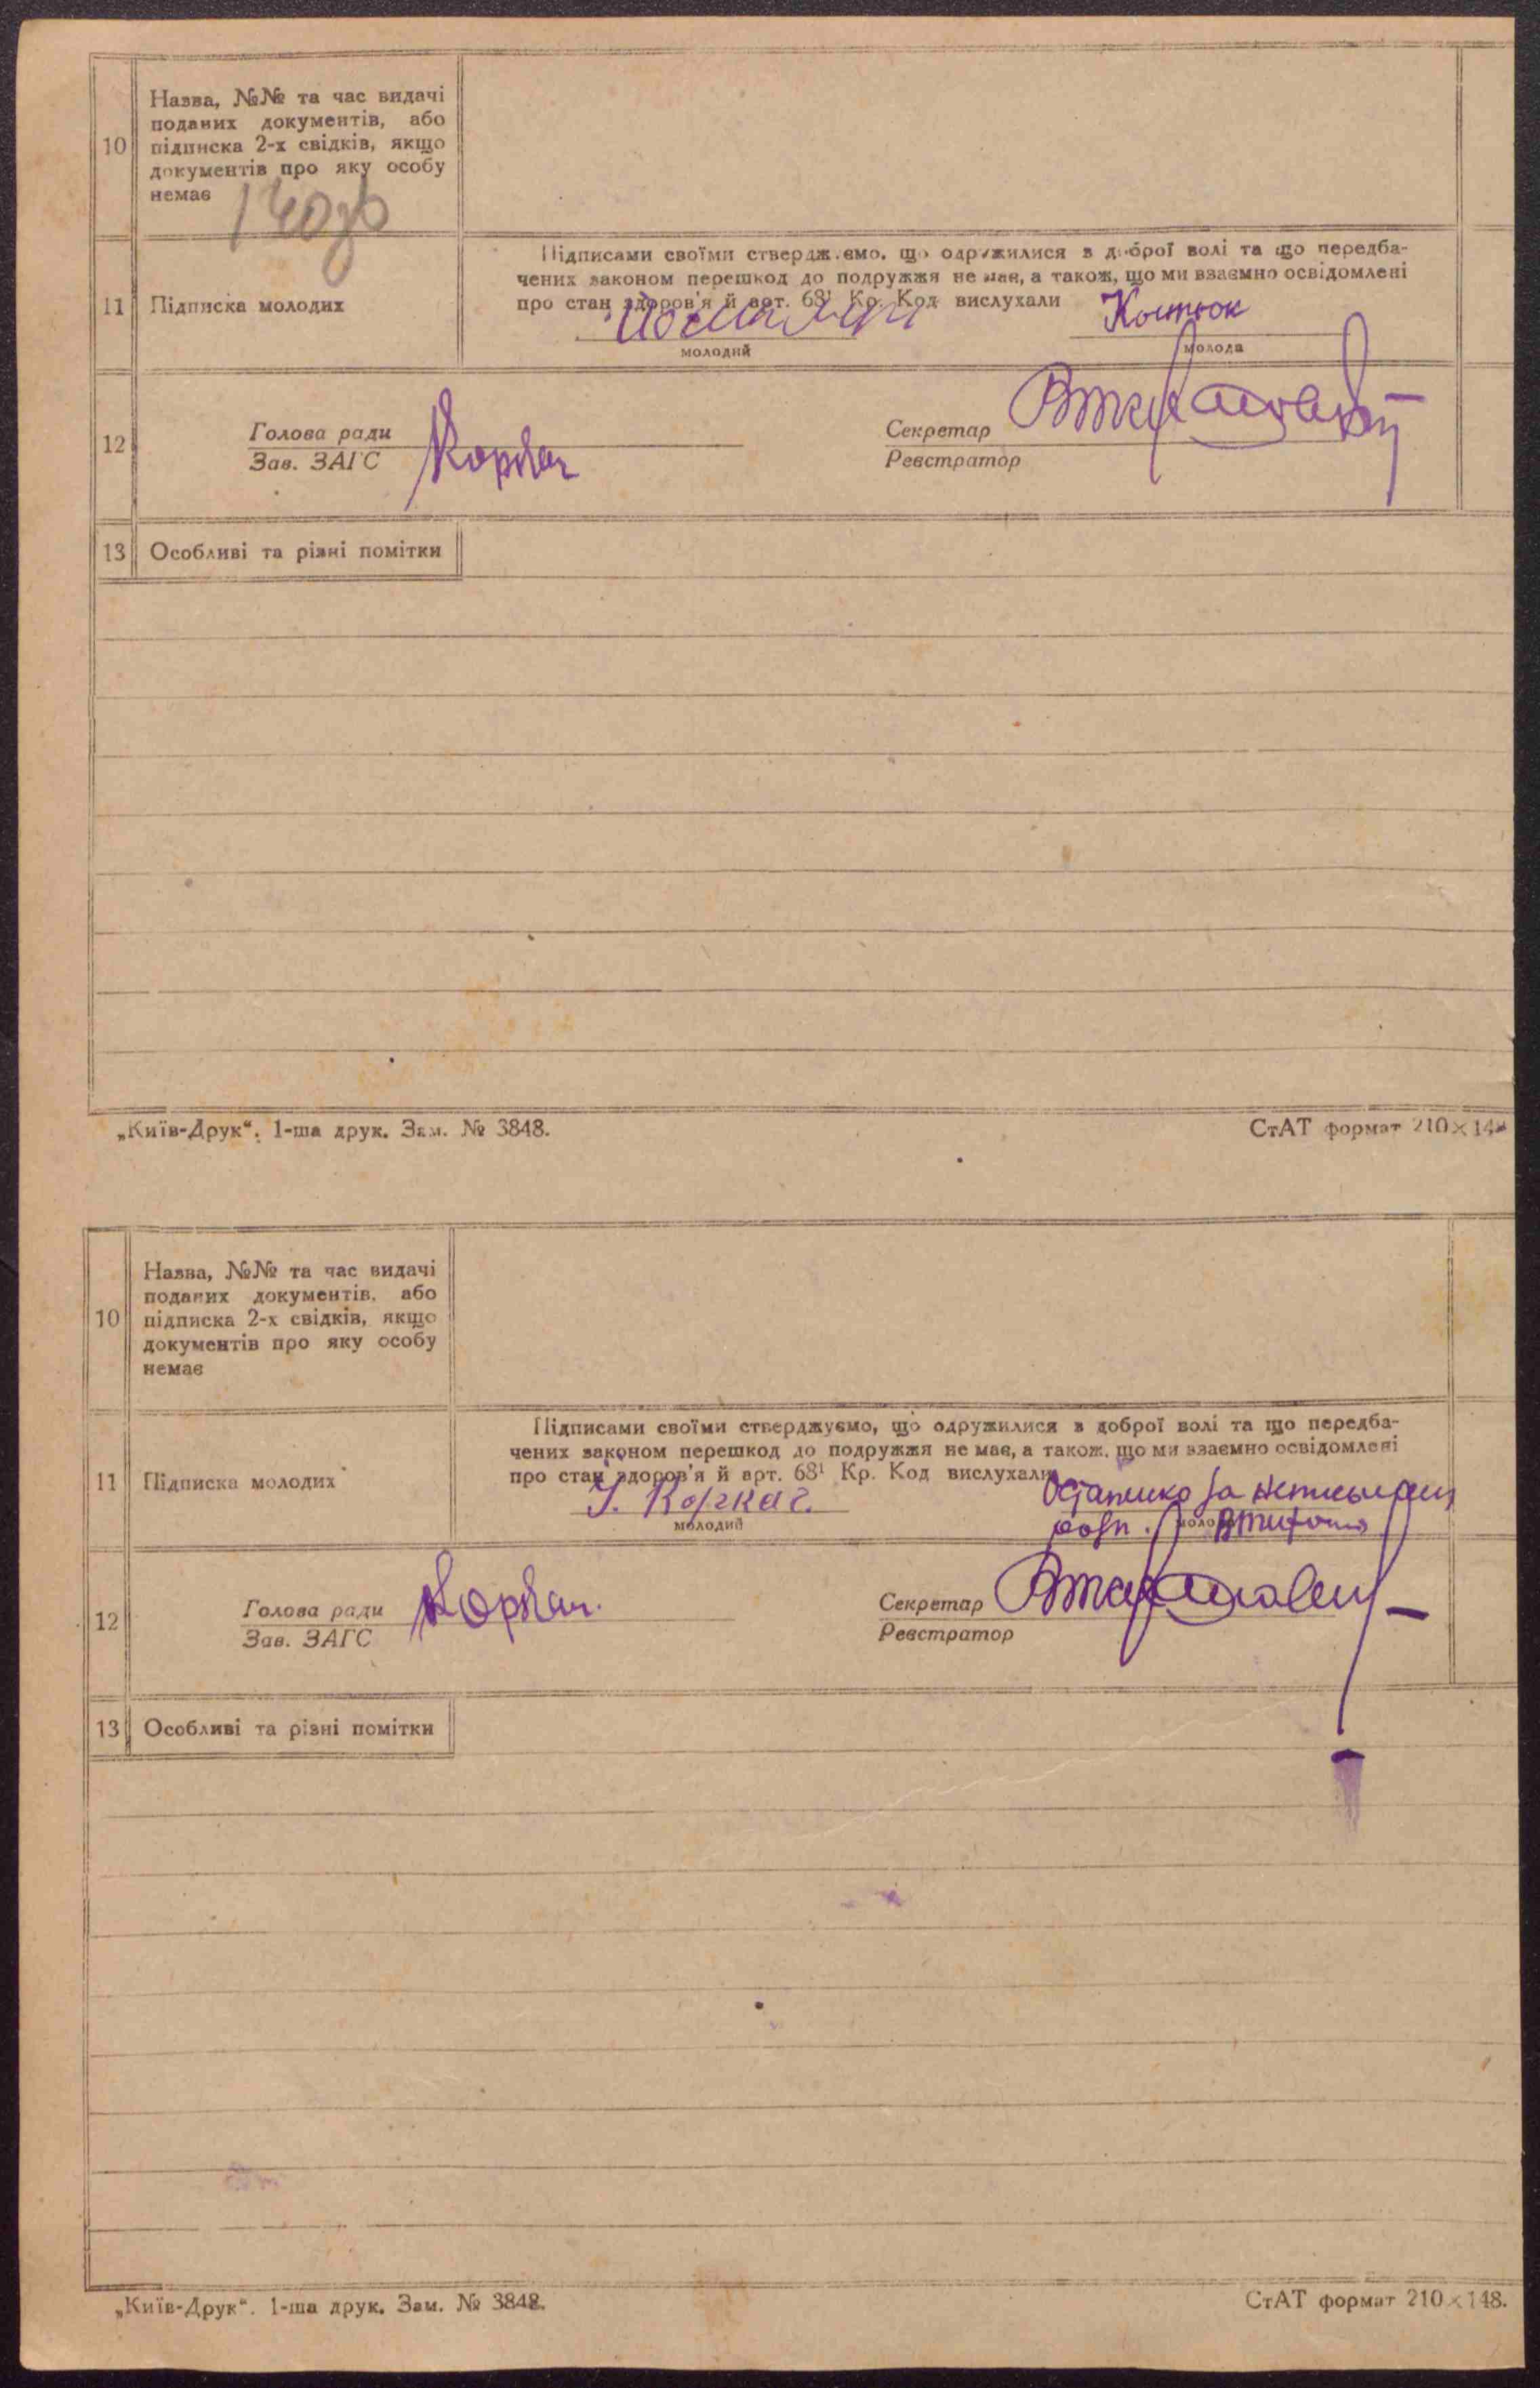 10
Назва, №№ та час видачі
поданих документів, або
підписка 2-х свідків, якщо
документів про яку особу
немає
Підписами своїми стверджуємо, що одружилися з доброї волі та що передба-
чених законом перешкод до подружжя не має, а також, що ми взаємно освідомлені
11 Підписка молодих
про стан здоров'я й арт. 68¹ Кр. Код вислухали
Костюк
молодий
молода
12
Голова ради
Зав. ЗАГС
Секретар
Реєстратор
13 Особливі та різні помітки
„Київ-Друк“. 1-ша друк. Зам. № 3848.
СтАТ формат 210×148
10
Назва, №№ та час видачі
поданих документів, або
підписка 2-х свідків, якщо
документів про яку особу
немає
Підписами своїми стверджуємо, що одружилися з доброї волі та що передба-
чених законом перешкод до подружжя не має, а також, що ми взаємно освідомлені
11 Підписка молодих
про стан здоров'я й арт. 68¹ Кр. Код вислухали
за
молодий
розп.
молода
12
Голова ради
Зав. ЗАГС
Секретар
Реєстратор
13 Особливі та різні помітки
„Київ-Друк“. 1-ша друк. Зам. № 3848.
СтАТ формат 210×148.